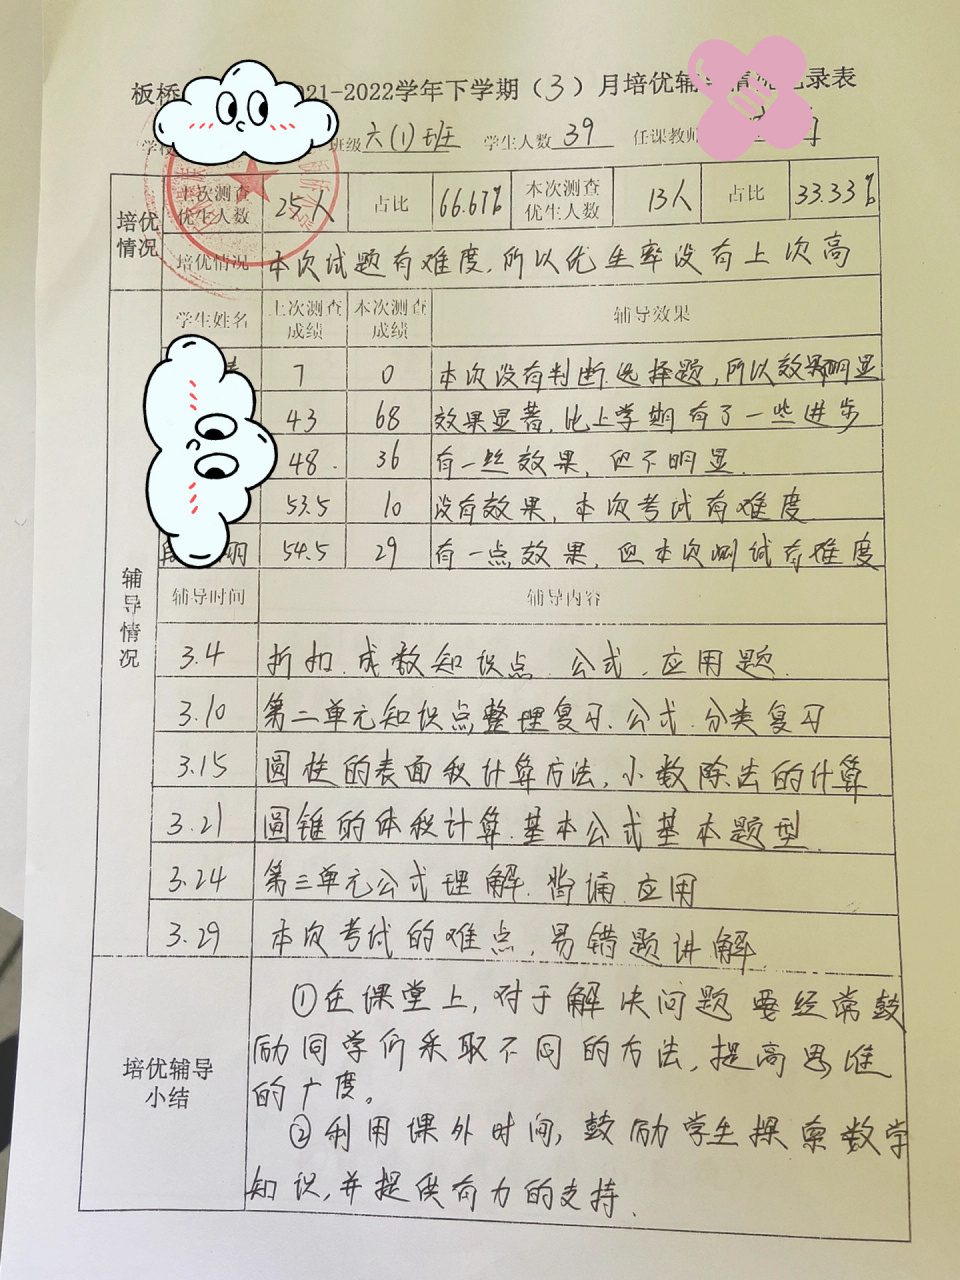 板桥 021-2022学年下学期（3）月培优辅 情况记录表
学校 班级 六(1)班 学生人数 39 任课教师
培优情况 上次测查优生人数 25人 占比 66.67% 本次测查优生人数 13人 占比 33.33%
培优情况 本次试题有难度,所以优生率没有上次高
学生姓名 上次测查成绩 本次测查成绩 辅导效果
7 0 本次没有判断.选择题,所以效果 明显
43 68 效果显著,比上学期有了一些进步
48. 36 有一些效果,但不明显.
53.5 10 没有效果,本次考试有难度
54.5 29 有一点效果,但本次测试有难度
辅导情况
辅导时间 辅导内容
3.4 折扣.成数知识点.公式.应用题.
3.10 第二单元知识点整理复习.公式.分类复习
3.15 圆柱的表面积计算方法,小数除法的计算
3.21 圆锥的体积计算.基本公式基本题型
3.24 第三单元公式理解.背诵.应用
3.29 本次考试的难点,易错题讲解
培优辅导小结
①在课堂上,对于解决问题要经常鼓
励同学们采取不同的方法,提高思维
的广度。
②利用课外时间,鼓励学生探索数学
知识,并提供有力的支持.